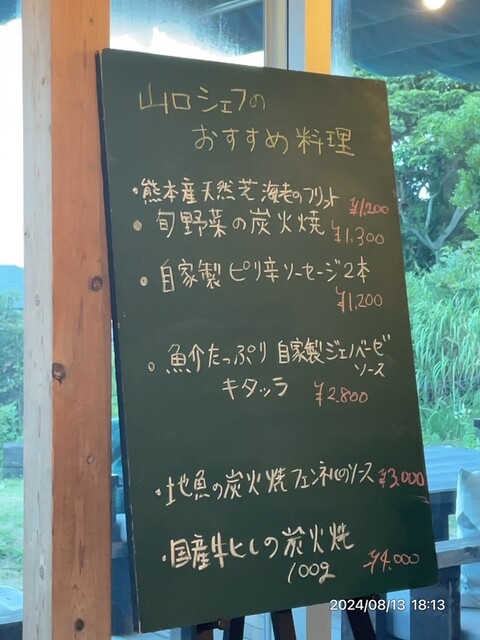 山口シェフの
おすすめ料理
・熊本産天然芝海老のフリット ¥1,200
・旬野菜の炭火焼 ¥1,300
・自家製ピリ辛ソーセージ2本
¥1,200
・魚介たっぷり自家製ジェノバーゼ
ソース
キタッラ ¥2,800
・地魚の炭火焼フェンネルのソース ¥3,000
・国産牛ヒレの炭火焼
100g ¥4,000
2024/08/13 18:13